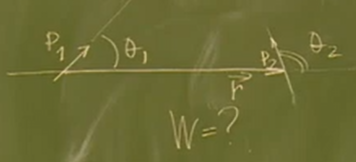 P₁ θ₁ P₂ θ₂
r⃗
W=?